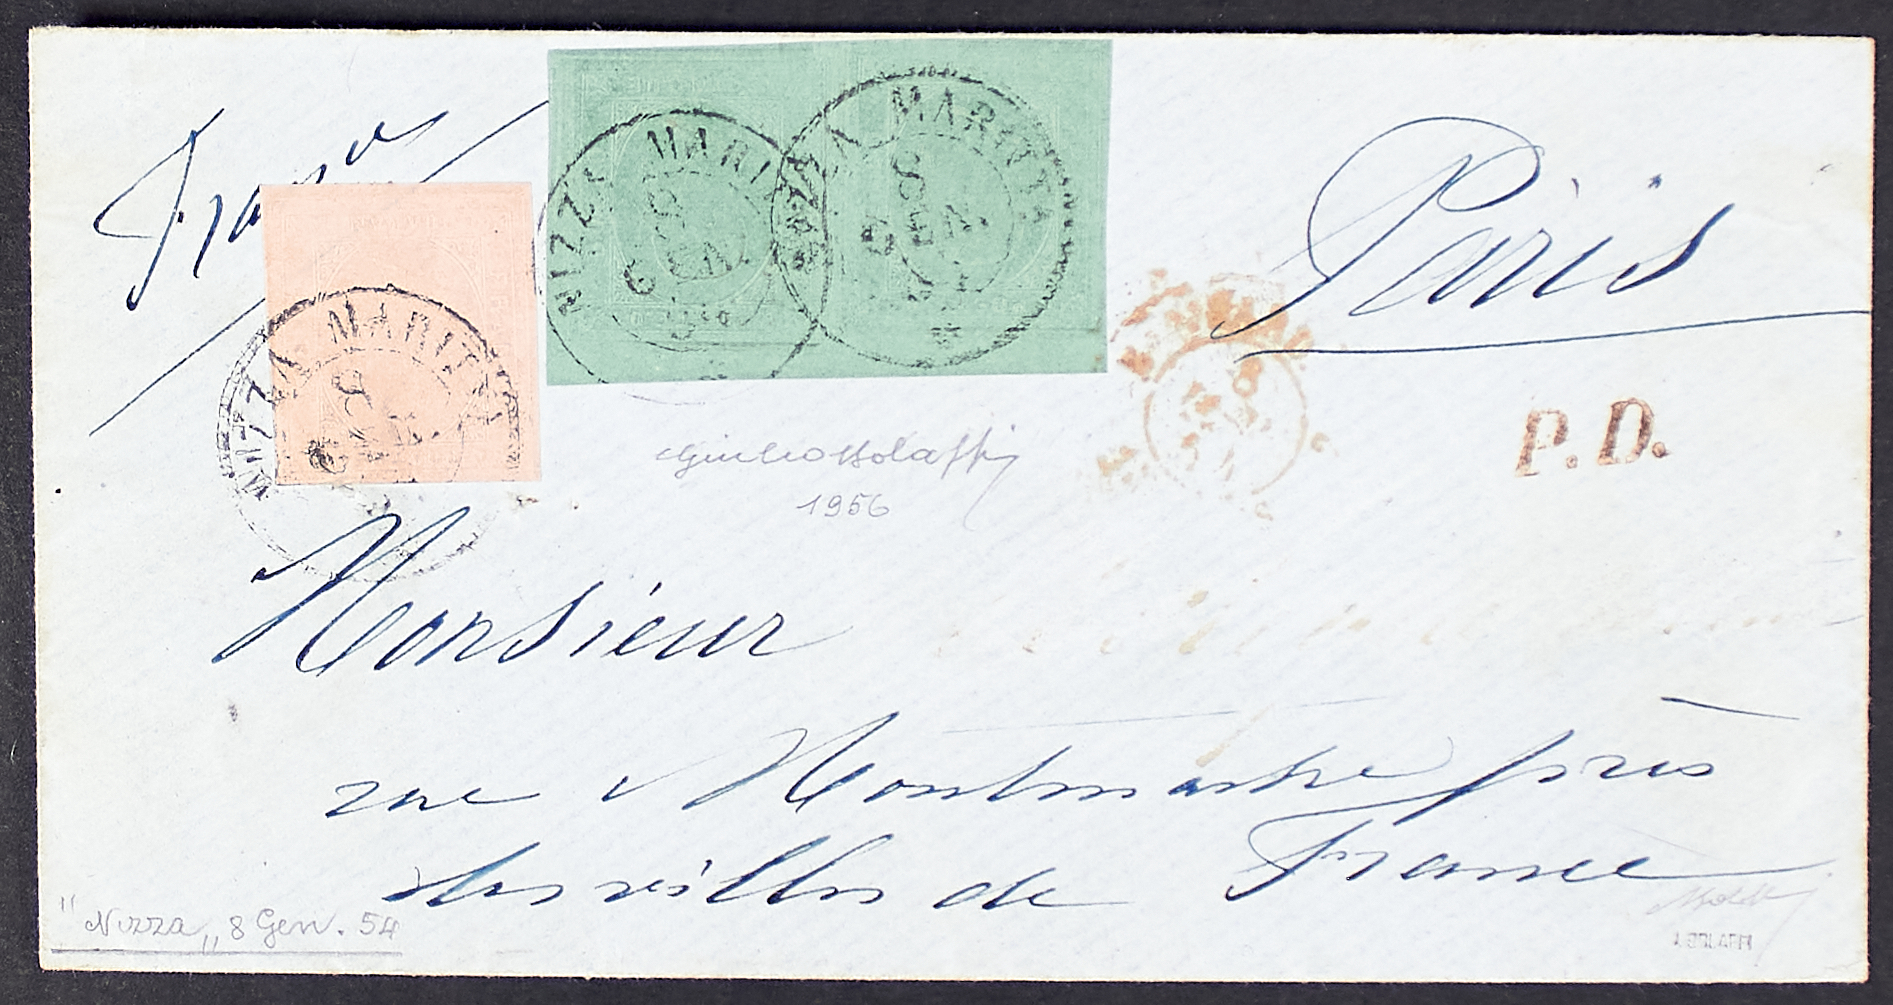 Paris
NIZZA MARITTA
8 GEN
NIZZA MARITTA
8 GEN
NIZZA MARITTA
8 GEN
P.D.
Giulio Bolaffi
1956
Monsieur
rue Montmartre près
des villes de France
"Nizza„ 8 Gen. 54
A. BOLAFFI